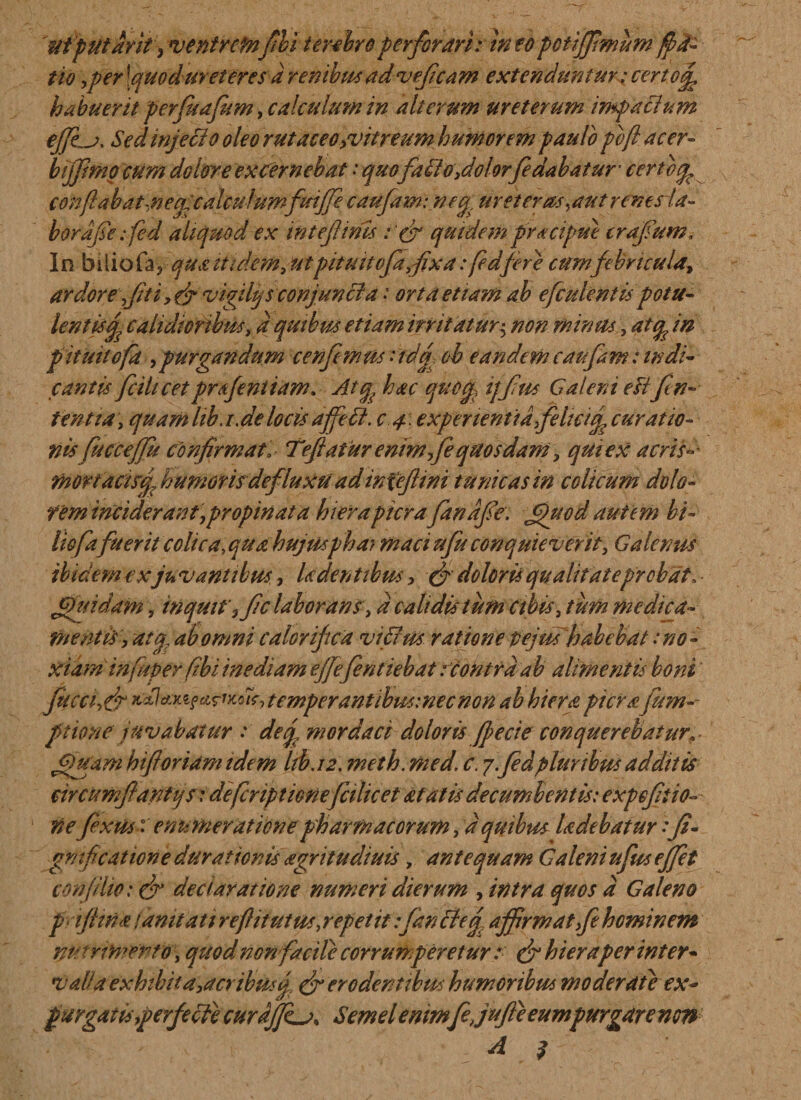 ut putarit, ventrem sibi terebro perforari: in eo potissimum spa-
tio, per quod ureteres à renibus ad vesicam extenduntur: certoq́;
habuerit persuasum, calculum in alterum ureterum impactum
esse. Sed injecto oleo rutaceo, vitreum humorem paulo post acer-
bissimo cum dolore excernebat: quo facto, dolor sedabatur: certoq́;
constabat, neq; calculum fuisse causam: neq; ureteras, aut renes la-
borâsse: sed aliquod ex intestinis: & quidem præcipuè crassum.
In biliosa, quæ itidem, ut pituitosa, fixa: sed ferè cum febricula,
ardore, siti, & vigilijs conjuncta: orta etiam ab esculentis potu-
lentisq́; calidioribus, à quibus etiam irritatur; non minus, atq; in
pituitosa, purgandum censemus: idq́; ob eandem causam: indi-
cantis scilicet præsentiam. Atq; hæc quoq́; ipsius Galeni est sen-
tentia, quam lib. 1. de locis affect. c. 4. experientiâ, feliciq́; curatio-
nis successu confirmat. Testatur enim, se quosdam, qui ex acris-
mortacisq́; humoris defluxu ad intestini tunicas in colicum dolo-
rem inciderant, propinata hiera picra sanâsse. Quod autem bi-
liosa fuerit colica, quæ hujus pharmaci usu conquieverit, Galenus
ibidem ex juvantibus, lædentibus, & doloris qualitate probat.
Quidam, inquit, sic laborans, à calidis tùm cibis, tùm medica-
mentis, atq; ab omni calorifica victus ratione pejus habebat: no-
xiam insuper sibi inediam esse sentiebat: contrà ab alimentis boni
succi, & temperantibus: nec non ab hieræ picræ sum-
ptione juvabatur: deq́; mordaci doloris specie conquerebatur.
Quam historiam idem lib. 12. meth. med. c. 7. sed pluribus additis
circumstantijs: descriptione scilicet ætatis decumbentis: expositio-
ne sexus: enumeratione pharmacorum, à quibus lædebatur: si-
gnificatione durationis ægritudiuis, antequam Galeni usus esset
consilio: & declaratione numeri dierum, intra quos à Galeno
pristinæ sanitati restitutus, repetit: sancteq́; affirmat, se hominem
nutrimento, quod non facilè corrumperetur: & hiera per inter-
valla exhibita, acribusq́; & erodentibus humoribus moderatè ex-
purgatis, perfectè curâsse. Semel enim se, justè eum purgare non
A 3